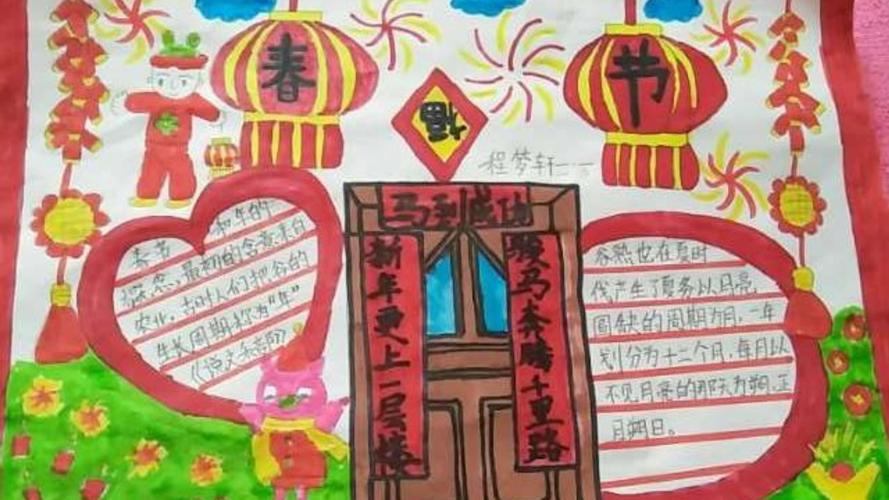 春
节
福
程梦轩
马到成功
新年更上一层楼
骏马奔腾千里路
春节 和年的
最初的含意来自
农业，古时人们把谷的
生长周期称为“年”
《说文禾部》
谷熟也在夏时
代产生了夏务以月亮
圆缺的周期为月，一年
划分为十二个月，每月以
不见月亮的那天为朔，正
月朔日。